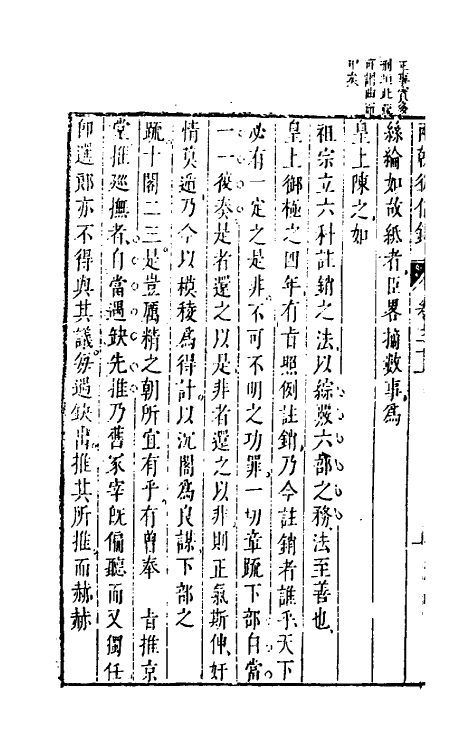 絲綸如故紙者臣畧摘數事爲
皇上陳之如
祖宗立六科註銷之法以綜覈六部之務法至善也
皇上御極之四年有旨照例註銷乃今註銷者誰乎天下
必有一定之是非不可不明之功罪一切章疏下部自當
一一復奏是者還之以是非者還之以非則正氣斯伸奸
情莫遁乃今以模稜爲得計以沉閣爲良謀下部之
疏十閣二三是豈厲精之朝所宜有乎有曾奉 旨推京
堂推巡撫者自當遇缺先推乃舊冢宰旣偏聽而又獨任
卽選郎亦不得與其議每遇缺出推其所推而赫赫